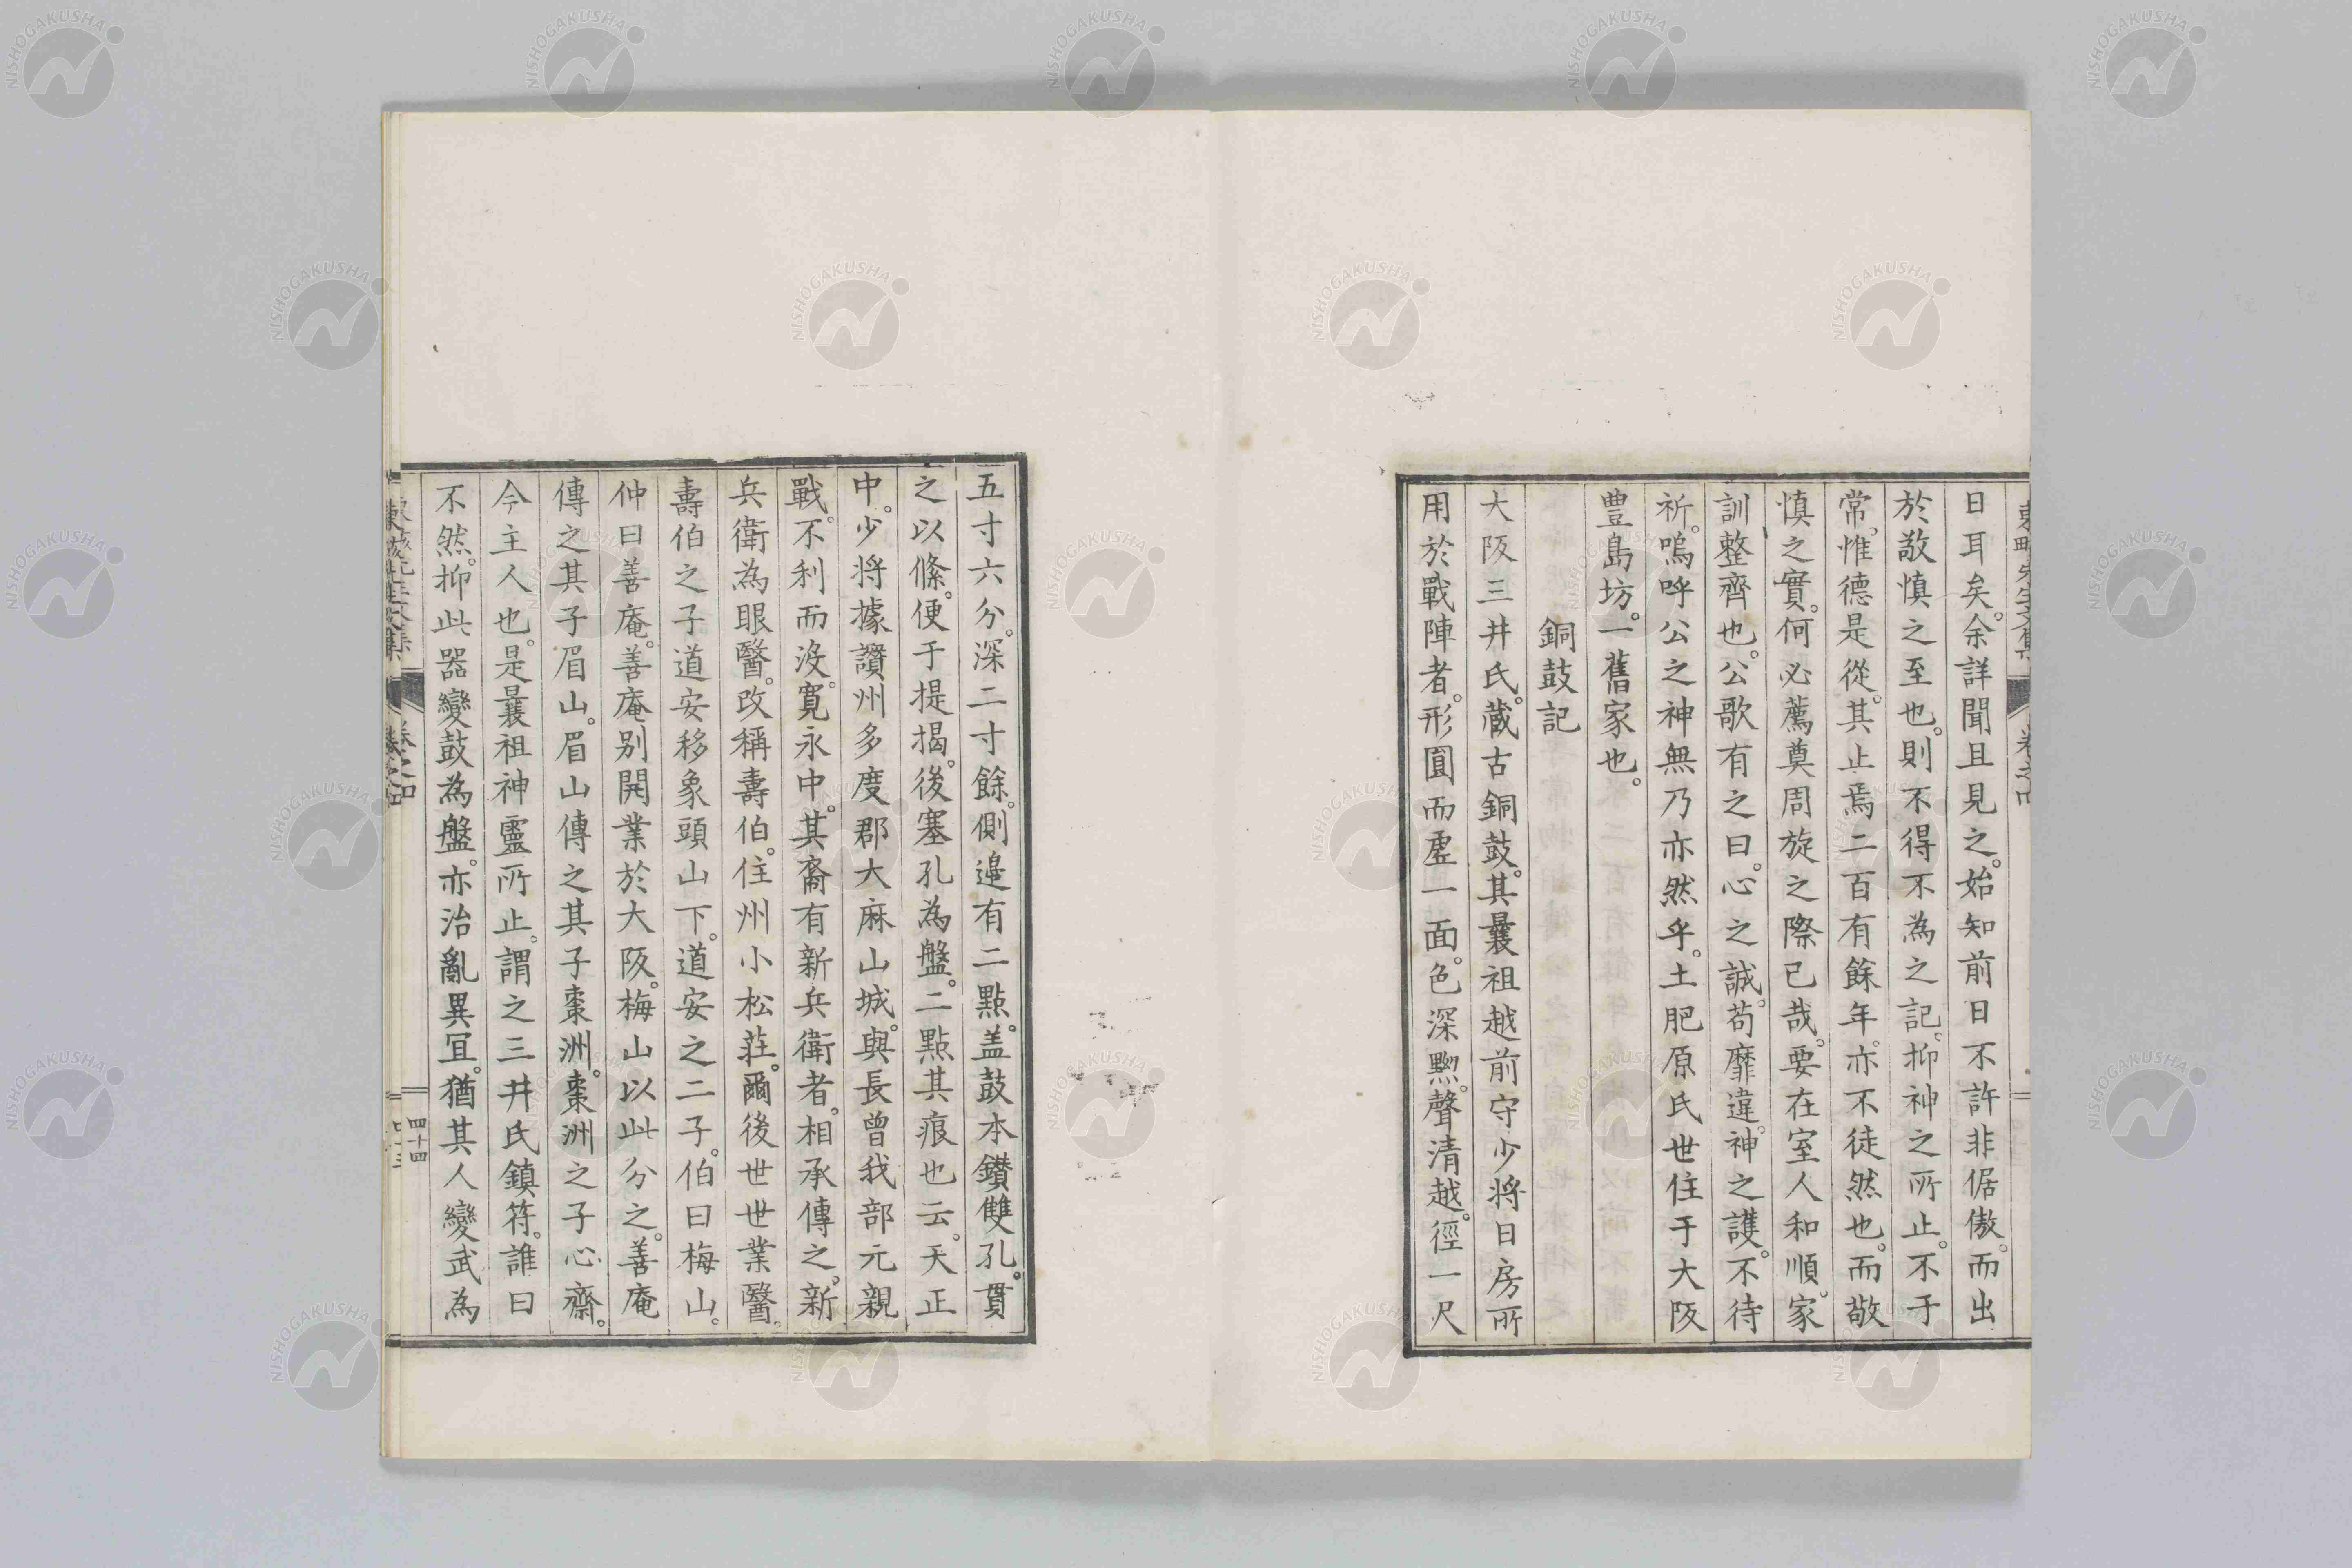 日耳矣。余詳聞且見之。始知前日不許非倨傲。而出
於敬慎之至也。則不得不為之記。抑神之所止。不于
常。惟德是從。其止焉二百有餘年。亦不徒然也。而敬
慎之實。何必薦奠周旋之際已哉。要在室人和順。家
訓整齊也。公歌有之曰。心之誠。苟靡違。神之護。不待
祈。嗚呼公之神無乃亦然乎。土肥原氏世住于大阪
豊島坊。一舊家也。
銅鼓記
大阪三井氏。蔵古銅鼓。其曩祖越前守少将日房所
用於戰陣者。形圓而虛一面。色深黝。聲清越。徑一尺
五寸六分。深二寸餘。側邉有二點。盖鼓本鑚雙孔。貫
之以絛。便于提掲。後塞孔為盤。二點其痕也云。天正
中。少将據讚州多度郡大麻山城。與長曽我部元親
戰。不利而沒。寛永中。其裔有新兵衛者。相承傳之。新
兵衛為眼醫。改稱壽伯。住州小松莊。爾後世世業醫。
壽伯之子道安移象頭山下。道安之二子。伯曰梅山。
仲曰善庵。善庵别開業於大阪。梅山以此分之。善庵
傳之其子眉山。眉山傳之其子棗洲。棗洲之子心齋。
今主人也。是曩祖神靈所止。謂之三井氏鎮符。誰曰
不然。抑此器變鼓為盤。亦治亂異冝。猶其人變武為
卷之四
四十四
NISHOGAKUSHA